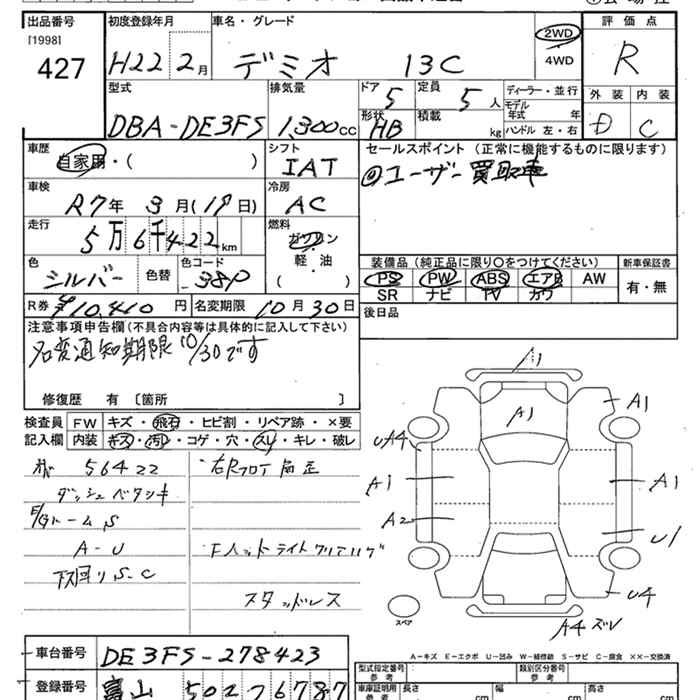 出品番号
[1998]
427
初度登録年月
H22 2月
車名・グレード
デミオ 13C
2WD
4WD
評価点
R
外装 内装
D C
型式
DBA-DE3FS
排気量
1,300cc
ドア 5
定員 5人
形状 HB
積載 kg
ディーラー・並行
モデル年式 年
ハンドル 左・右
車歴
自家用・( )
シフト
IAT
セールスポイント (正常に機能するものに限ります)
◎ユーザー買取車
車検
R7年 3月(19日)
冷房
AC
走行
5万6千422km
燃料
ガソリン
軽・油
( )
色
シルバー
色替
色コード
38P
装備品 (純正品に限り○をつけてください)
PS PW ABS エアB AW
SR ナビ TV カワ
新車保証書
有・無
R券 ¥10,410円
名変期限 10月30日
後日品
注意事項申告欄(不具合内容等は具体的に記入して下さい)
名変通知期限10/30です
修復歴 有 〔箇所 〕
検査員記入欄
FW キズ・飛石・ヒビ割・リペア跡・×要
内装 キズ・汚レ・コゲ・穴・スレ・キレ・破レ
56422
ダッシュベタツキ
E/Gルーム S
A-U
下廻りS-C
右Rフロア 歪正
スタッドレス
A1
A1
UA4
A1
A1
A2
U1
U4
A4
スペア
A-キズ E-エクボ U-凹み W-補修跡 S-サビ C-腐食 ××-交換済
車台番号
DE3FS-278423
登録番号
富山 502 7 6787
型式指定番号
参考
類別区分番号
車庫証明用
参考
長さ cm
幅 cm
高さ cm